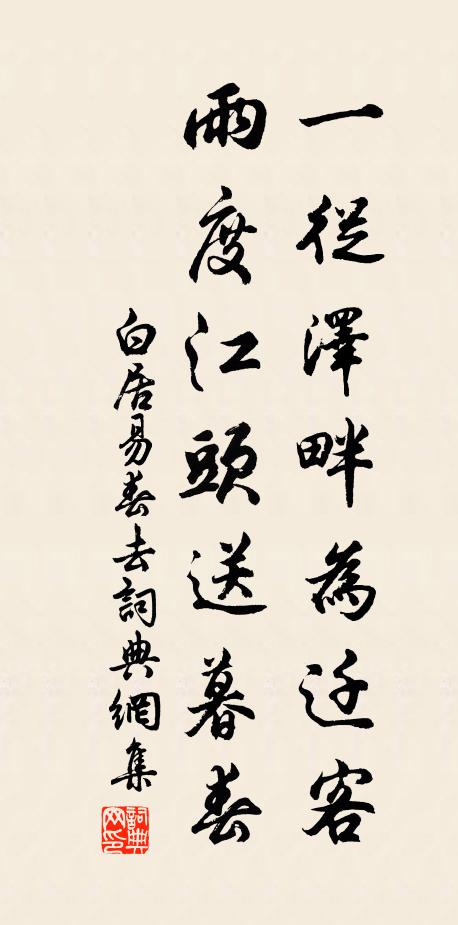 一從澤畔為迁客
兩度江頭送暮春
白居易春去詞典網集
詞典网印